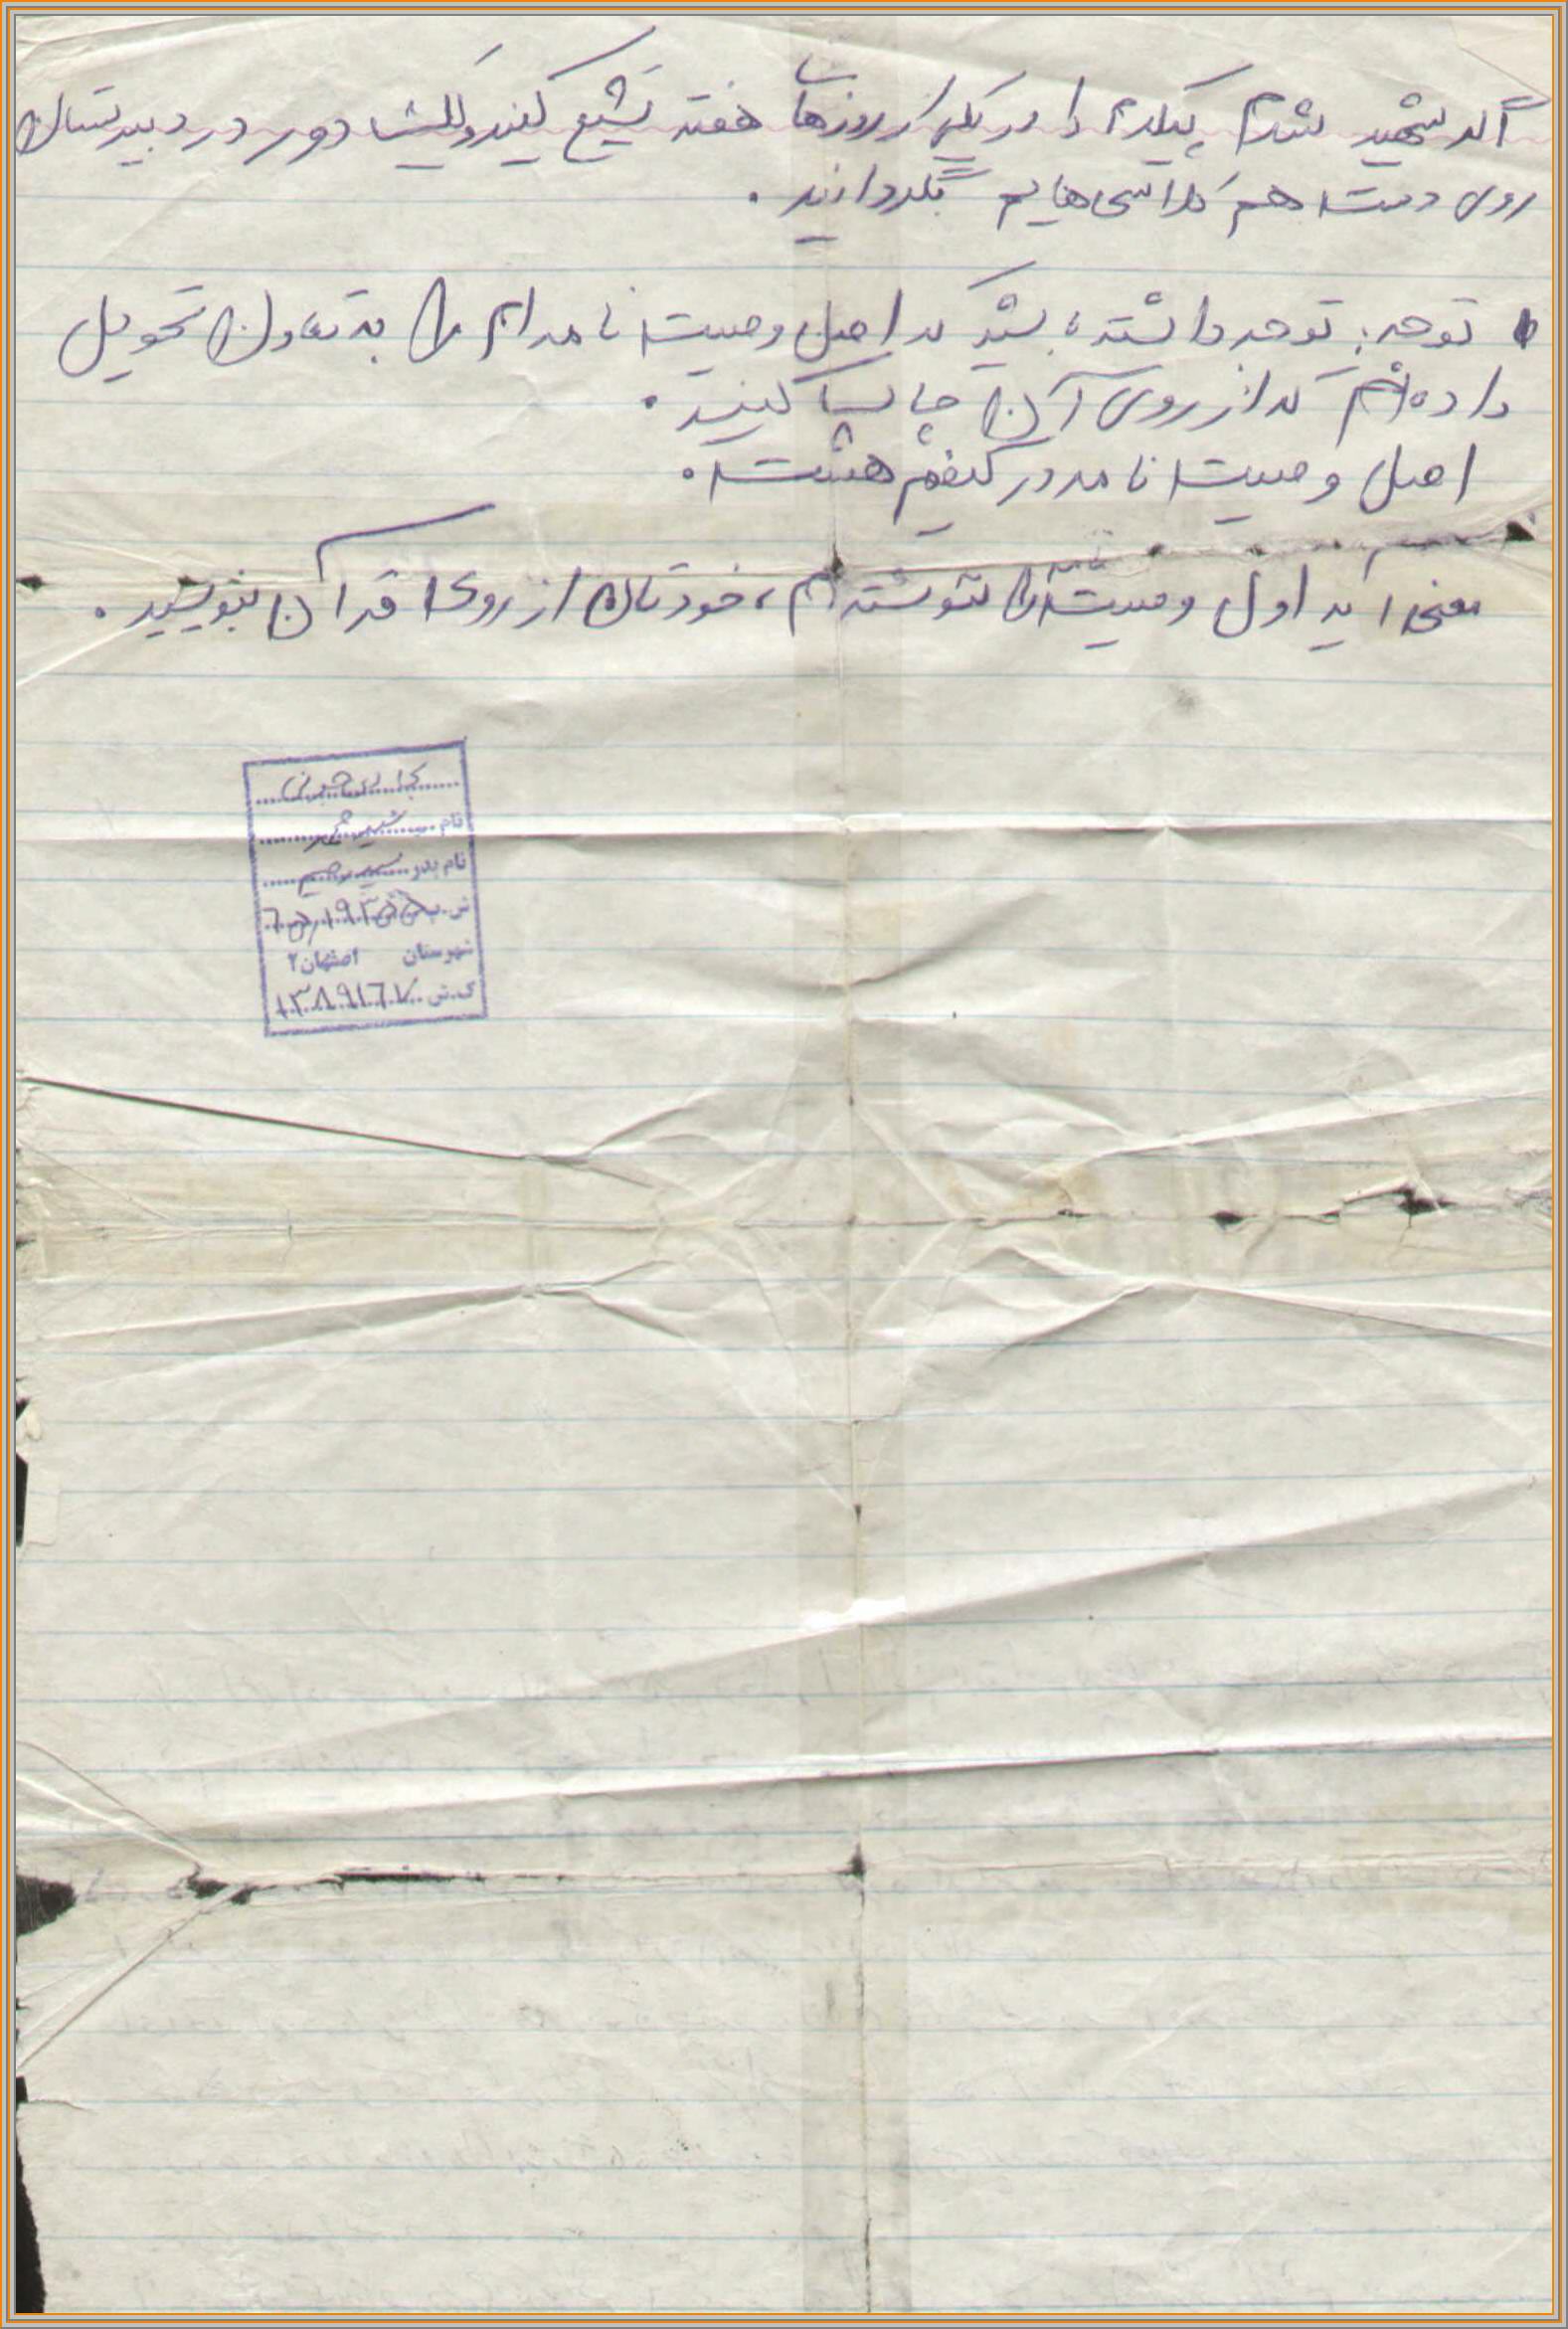 اگر شهید شدم پیکرم را در یکی از روزهای هفته تشییع کنید و یک دور در دبیرستان
روی دست هم کلاسی‌هایم بگردانید.
توجه: توجه داشته باشید که اصل وصیت نامه ام را به تعاون تحویل
داده‌ام که از روی آن چاپ کنید.
اصل وصیت نامه در کیفم هست.
معنی آیه اول وصیت را ننوشته‌ام، خودتان از روی قرآن بنویسید.
نام
نام پدر
ش.پ
شهرستان اصفهان ۲
ک.ش ۱۳۸۹۱۶۷